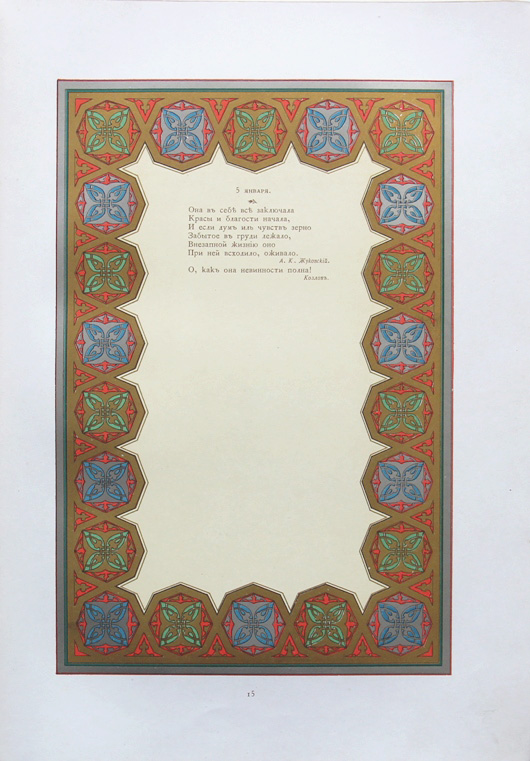 5 января.
Она въ себѣ всѣ заключала
Красы и благости начала,
И если думъ иль чувствъ зерно
Забытое въ груди лежало,
Внезапной жизнію оно
При ней всходило, оживало.
А. К. Жуковскій.
О, какъ она невинности полна!
Козловъ.
15